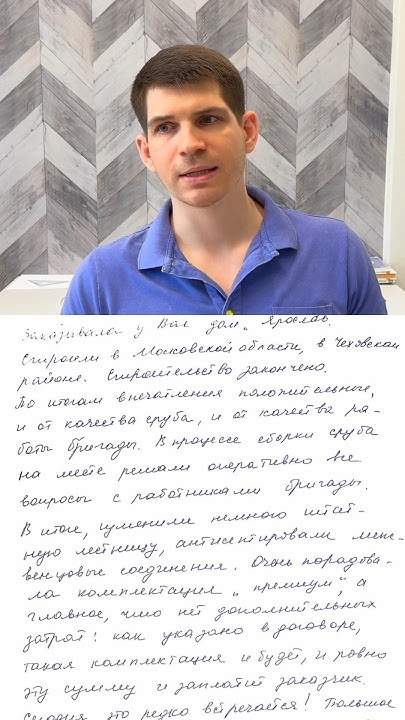 Заказывала у Вас дом „Ярославь.
Строили в Московской области, в Чеховском
районе. Строительство закончено.
По итогам впечатления положительные,
и от качества сруба, и от качества ра-
боты бригады. В процессе сборки сруба
на месте решали оперативно все
вопросы с работниками бригады.
В итоге, изменили немного штат-
ную лестницу, антисептировали меж-
венцовые соединения. Очень порадова-
ла комплектация „премиум“, а
главное, что нет дополнительных
затрат: как указано в договоре,
такая комплектация и будет, и ровно
эту сумму и заплатит заказчик.
Сегодня это редко встречается! Большое